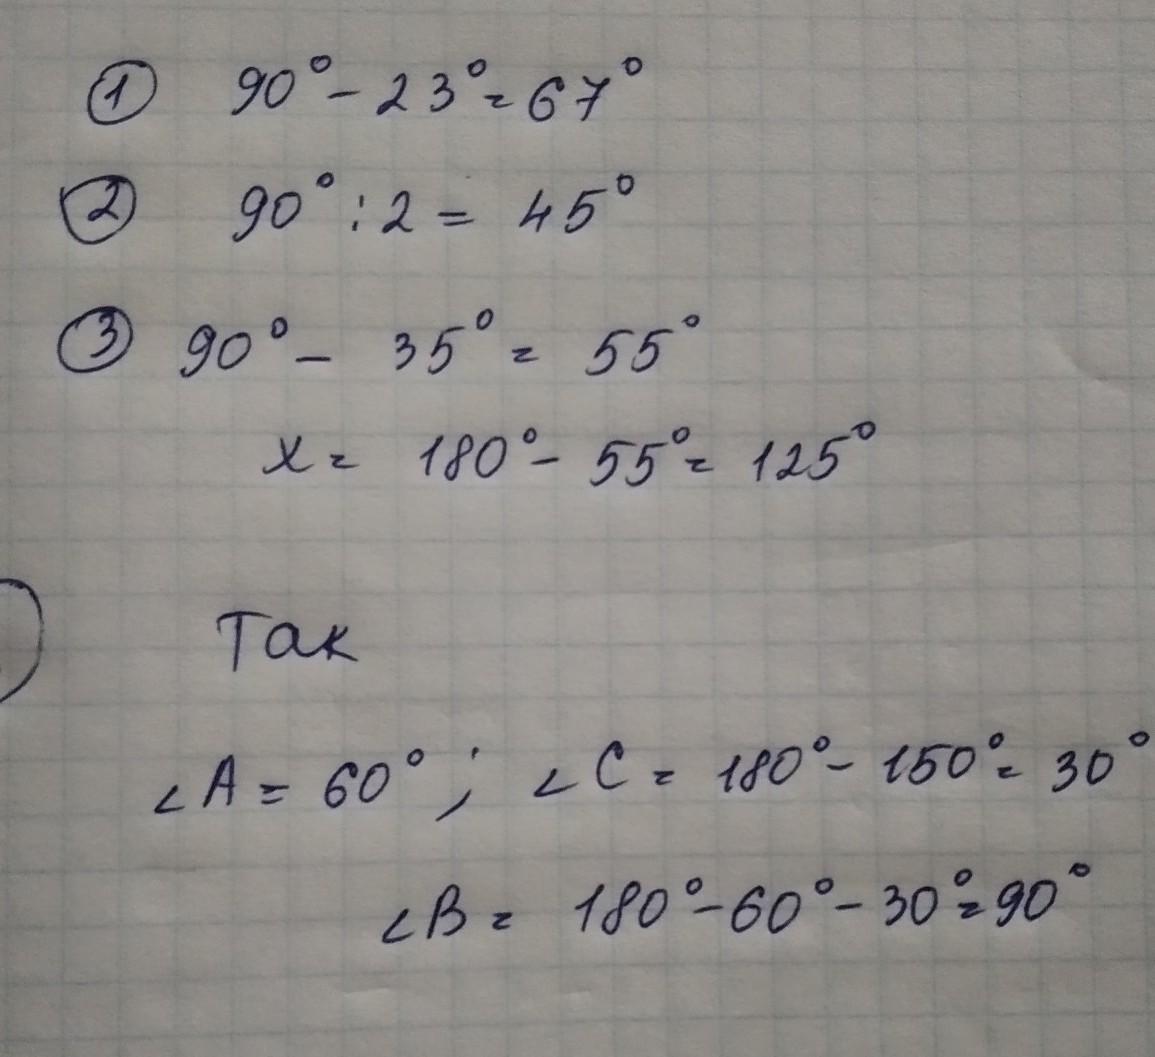 ① 90° - 23° = 67°
② 90° : 2 = 45°
③ 90° - 35° = 55°
x = 180° - 55° = 125°
Так
∠A = 60° ; ∠C = 180° - 150° = 30°
∠B = 180° - 60° - 30° = 90°